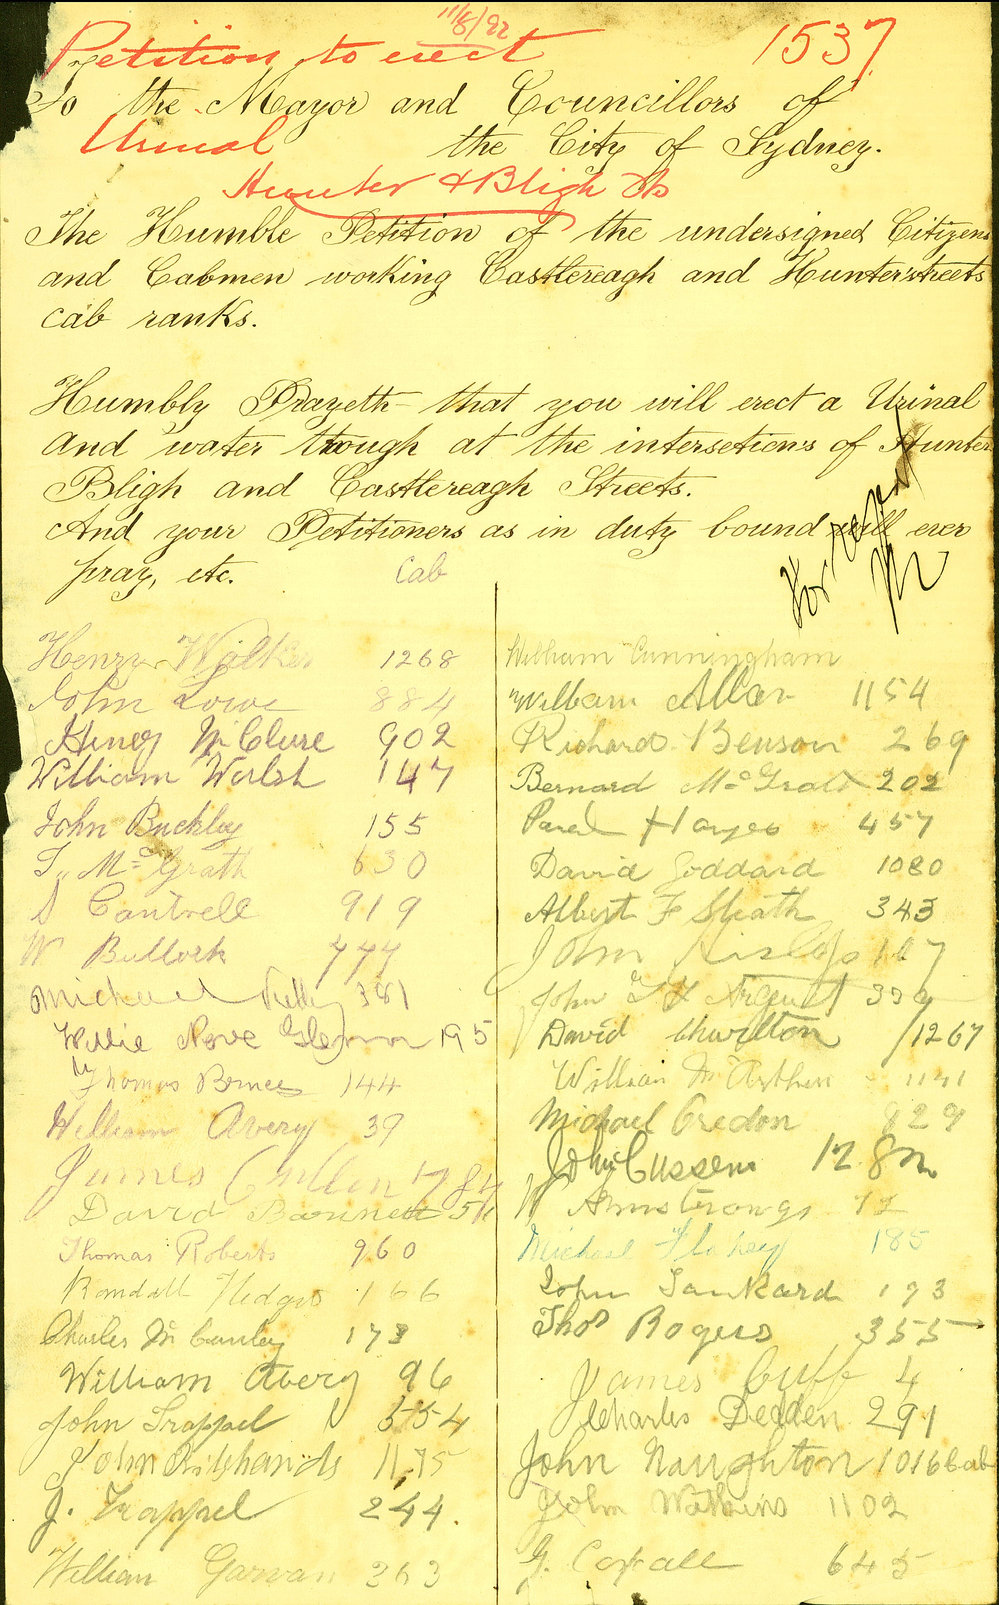 11/8/92
Petition to erect 1537
To the Mayor and Councillors of
Urinal the City of Sydney.
Hunter & Bligh Sts
The Humble Petition of the undersigned Citizens
and Cabmen working Castlereagh and Hunter streets
cab ranks.
Humbly Prayeth that you will erect a Urinal
and water trough at the intersetions of Hunter
Bligh and Castlereagh Streets.
And your Petitioners as in duty bound will ever
pray, etc. Cab
For report
Henry Walker 1268
John Lowe 884
Henry McClure 902
William Walsh 147
John Buckley 155
T. McGrath 630
S Cantrell 919
W Bullock 777
Michael Kelly 381
Willie 195
Thomas 144
William Avery 39
James Cullen 1784
David Bannett
Thomas Roberts 960
Randall Hedges 166
Charles McCauley 173
William Avery 96
John Trappel 554
John 1175
J. Trappel 244.
William Garvan 263
William Cunningham
William Allan 1154
Richard Benson 269
Bernard McGrath 202
Hayes 457
David Goddard 1080
Albert F Sheath 343
John 167
John
David Charlton 1267
William McArthur 1141
Michael Credon 929
John Cussen 1282
W Armstrong 72
Michael Flahey 185
John Tankard 193
Thos Rogers 355
James Cuff 4
Charles Dedden 291
John Naughton 1016 Cab
John Watkins 1102
G. Coxall 645